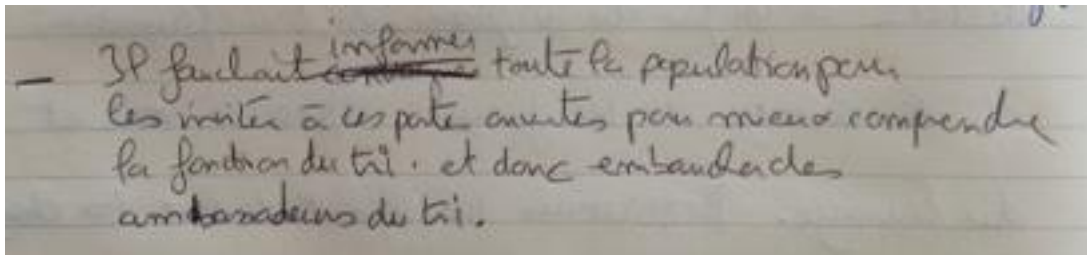 - Il faudrait informer toute la population pour
les inviter à ces porte ouvertes pour mieux comprendre
la fonction du tri. et donc embaucher des
ambassadeurs du tri.